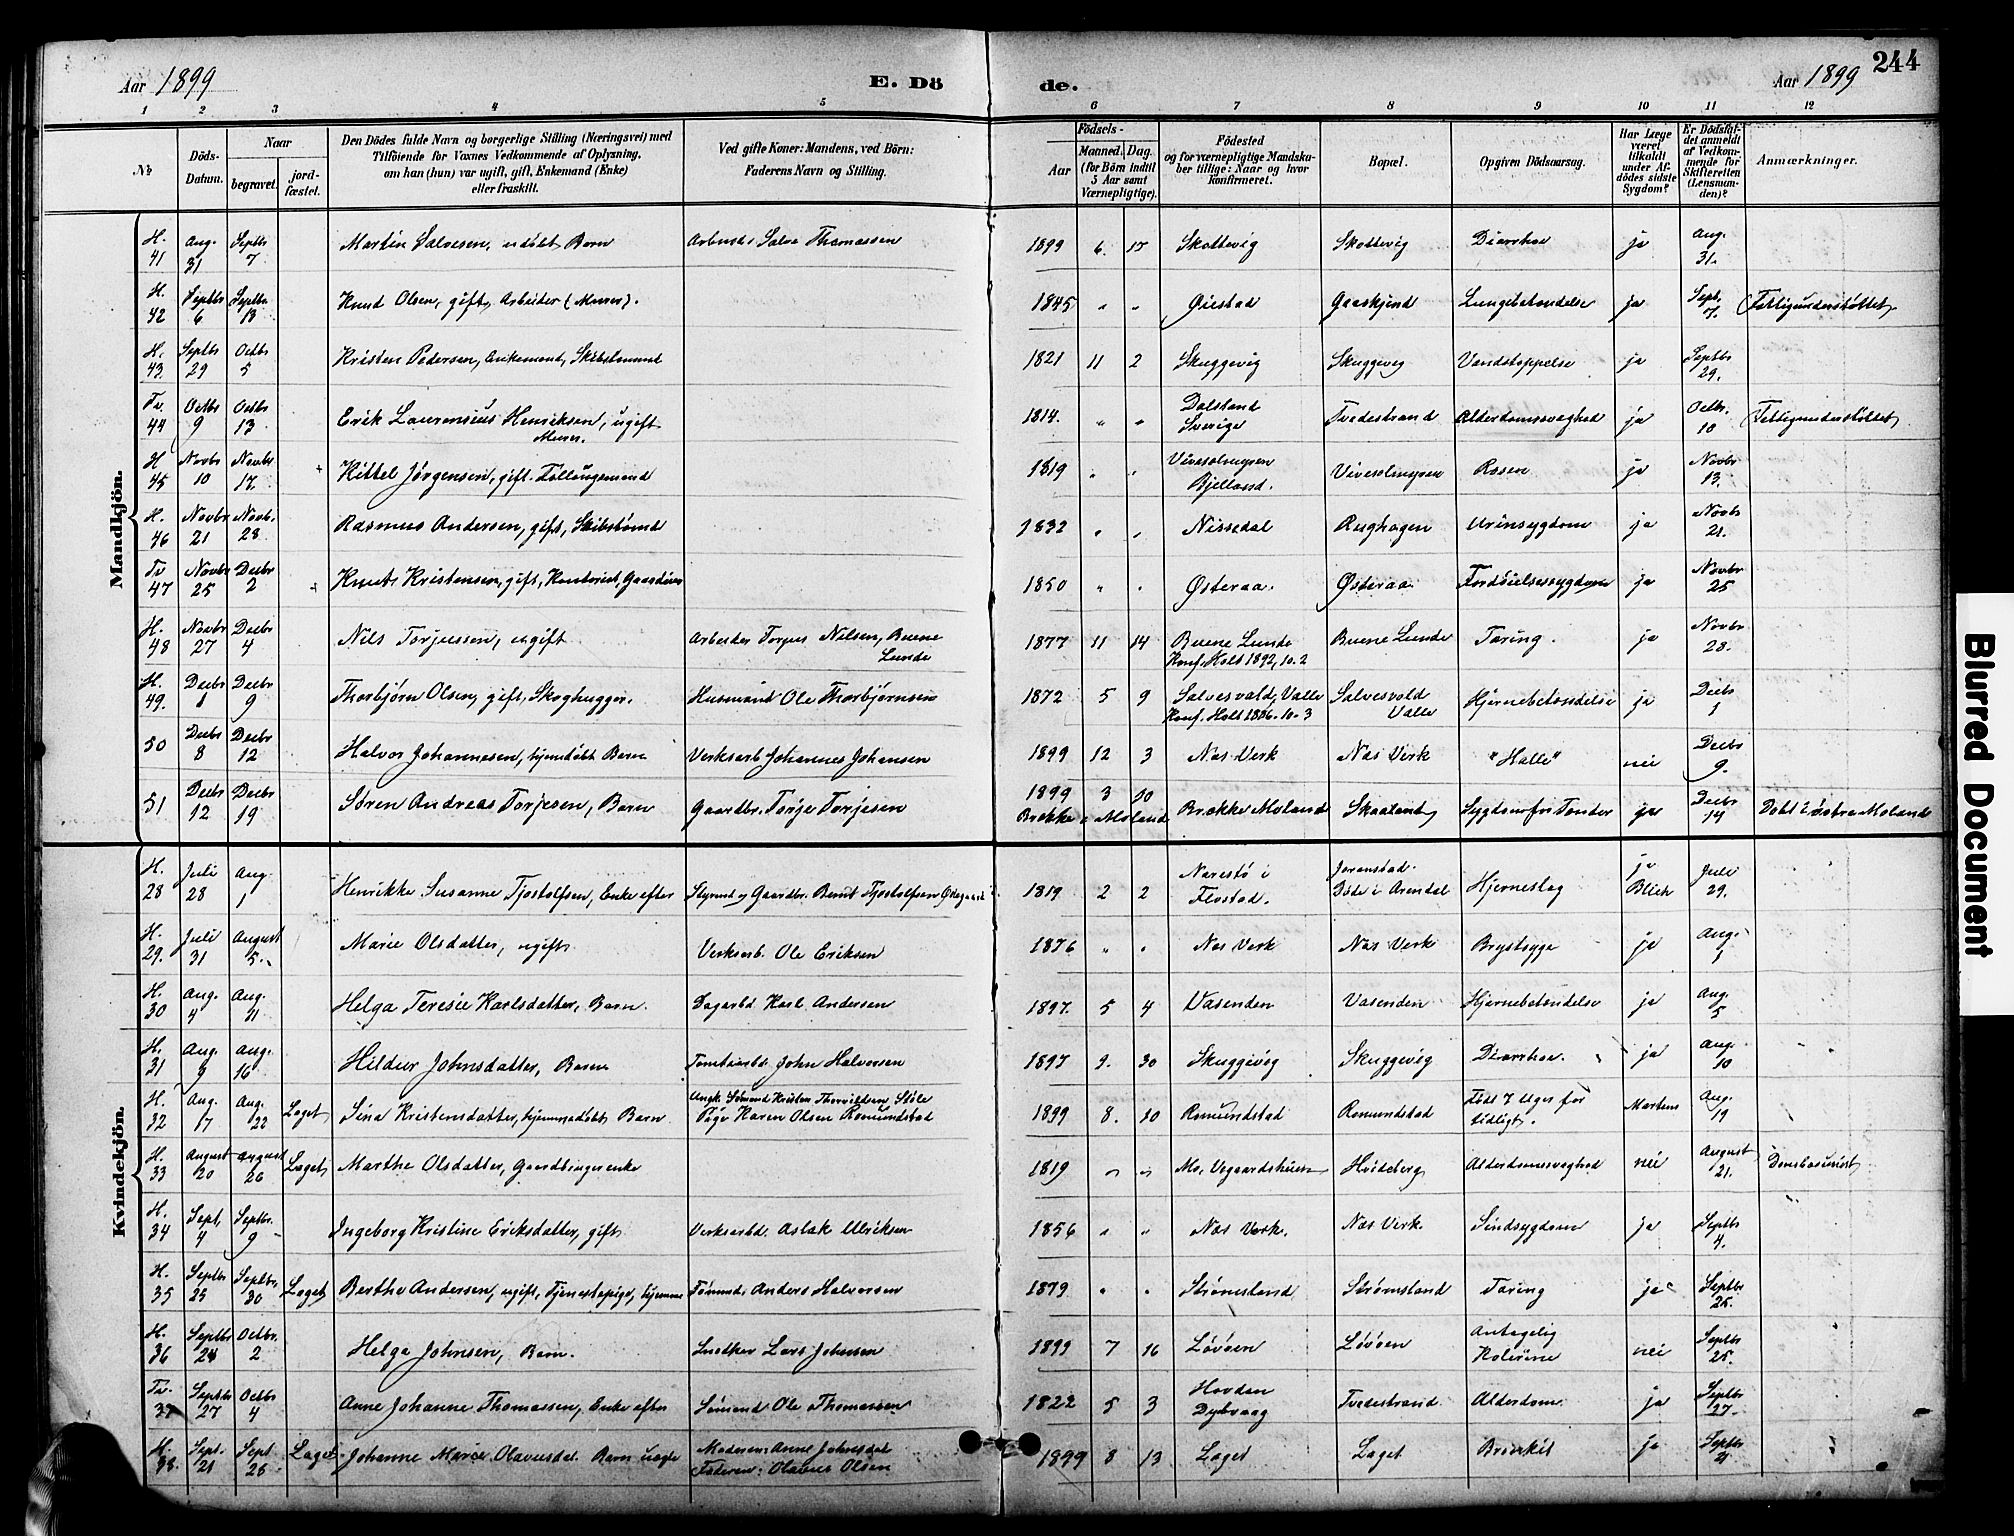 244
Aar 1899
E. Dö
de.
Aar 1899
1 2 3 4 5 6 7 8 9 10 11 12
No
Döds-Datum.
Naar
begravet.
jord-fæstet.
Den Dödes fulde Navn og borgerlige Stilling (Næringsvei) med
Tilföiende for Voxnes Vedkommende af Oplysning,
om han (hun) var ugift, gift, Enkemand (Enke)
eller fraskilt.
Ved gifte Koner: Mandens, ved Börn:
Faderens Navn og Stilling.
Födsels-
Aar
Maaned. Dag.
(for Börn indtil
5 Aar samt
Værnepligtige).
Födested
og for værnepligtige Mandska-
ber tillige: Naar og hvor
konfirmeret.
Bopæl.
Opgiven Dödsaarsag.
Har Læge
været
tilkaldt
under Af-
dödes sidste
Sygdom?
Er Dödsfal-
det anmeldt
af Vedkom-
mende for
Skifteretten
(Lensman-
den)?
Anmærkninger.
Mandkjön.
H. 41 Aug. 31 Septbr 7 Martin Salvesen, udöbt Barn Arbmd. Salve Thomassen 1899 6. 17 Skottevig Skottevig Diarrhoe ja Aug. 31.
H. 42 Septbr 6 Septbr 13 Knud Olsen, gift, Arbeider (Murer). 1845 " " Øiestad Lungebetændelse ja Sept. 7. Fattigunderstöttet
H. 43 Septbr 29 Octbr 5 Kristen Pedersen, Enkemand, Skibstømmd 1821 11 2 Skuggevig Skuggevig Vandstoppelse ja Septbr 29.
Tv. 44 Octbr 9 Octbr 13 Erik Laurensius Henriksen, ugift Murer. 1814. " " Dalsland Sverige Tvedestrand Alderdomssvaghed ja Octbr. 10 Fattigunderstöttet
H 45 Novbr 10 Novbr 17 + Kittel Jörgensen, gift. Föllaugsmand 1819 " " Bjelland. Rosen ja Novbr 13.
H. 46 Novbr 21 Novb. 28 Rasmus Andersen, gift, Skibstømd 1832 " " Nissedal Rughagen Urinsygdom ja Novbr 21.
Tv 47 Novbr 25 Decbr 2 + Knut Kristensen, gift, Kontorist, Gaardeier 1850 " " Østeraa. Østeraa Fordöielsessygdom ja Novbr 25
H. 48 Novbr 27 Decbr 4 Nils Torjussen, ugift Arbeider Torjus Nilsen, Buene Lunde 1877 11 14 Buene Lunde Konf. Holt 1892, 10. 2 Buene Lunde Tæring. ja Novbr 28.
H. 49. Decbr 1 Decbr 9 Thorbjörn Olsen, gift, Skoghugger. Husmand Ole Thorbjörnsen 1872 5 9 Salvesvold, Valle Konf. Holt 1886. 10. 3 Salvesvold Valle Hjernebetændelse ja Decbr 1
50 Decbr 8 Decbr 12 Halvor Johannesen, hjemdöbt Barn Verksarb Johannes Johansen 1899 12 3 Næs Verk Næs Verk "Halle" nei Decbr 9.
51 Decbr 12 Decbr 19 Sören Andreas Torjesen, Barn Gaardbr. Torje Torjesen 1899 3 10 Brække i Moland Brække Moland ja Decbr 14 Döbt i Østre Moland
Kvindekjön.
H. 28 Juli 28 Aug. 1 Henrikke Susanne Tjostolfsen, Enke efter Styrmd og Gaardbr. Bernt Tjostolfsen 1819 2 2 Narestö i Flostad. Döde i Arendal Hjerneslag ja Blich Juli 29.
H. 29. Juli 31 August 5. Marie Olsdatter, ugift Verksarb. Ole Eriksen 1876 " " Næs Verk Næs Verk Brystsyge ja Aug. 1
H. 30 Aug. 4 Aug. 11 Helga Teresie Karlsdatter, Barn. Dagarbd Karl Andersen 1897. 5 4 Vasenden Vasenden Hjernebetændelse ja Aug. 5
H. 31 Aug. 9 Aug. 16 Hildur Johnsdatter, Barn Tomtearbd. John Halvorsen 1897 9. 30 Skuggevig Skuggevig Diarrhoe. ja Aug. 10
H. 32 Aug. 17 Aug. 22 Laget Sina Kristensdatter, hjemmedöbt Barn Ungk. Sömand Kristen Thorvildsen Støle Pige Karen Olsen Romundstad 1899 8. 10 Romundstad Romundstad Födt 7 Uger for tidligt. Martens Aug. 19
H. 33 August 20 August 26 Laget Marthe Olsdatter, Gaardbrugerenke 1819 " " Mo, Vegaardsheien Hvideberg Alderdomssvaghed nei August 21.
H. 34 Sept. 4 Septbr. 9 Ingeborg Kristine Eriksdatter, gift Verksarbd. Aslak Ulriksen 1856 " " Næs Verk. Næs Verk. Sindsygdom ja Septbr 4.
H. 35 Septbr 23 Septbr. 30 Laget Berthe Andersen, ugift, Tjenestepige, hjemme Tömmd. Anders Halvorsen 1879 " " Strömsland Strömsland Tæring ja Septbr 25.
H. 36 Septbr 24 Octbr. 2 Helga Johnsen, Barn. Snedker Lars Johnsen 1899 7 16 Lövåen Lövåen Antagelig Kolerine nei Septbr 25.
Tv. 37 Septbr 27 Octbr 4 Anne Johanne Thomassen, Enke efter Sömand Ole Thomassen 1822 5 3 Hovden Dybvaag Tvedestrand. Alderdom. ja Septbr 27.
H. 38. Sept. 21 Sept 26 Laget Johanne Marie Olavusdat. Barn uægte Moderen: Anne Johnsdat Faderen: Olavus Olsen 1899 8 13 Laget Laget Bronkit ja Septbr 21
Blurred Document